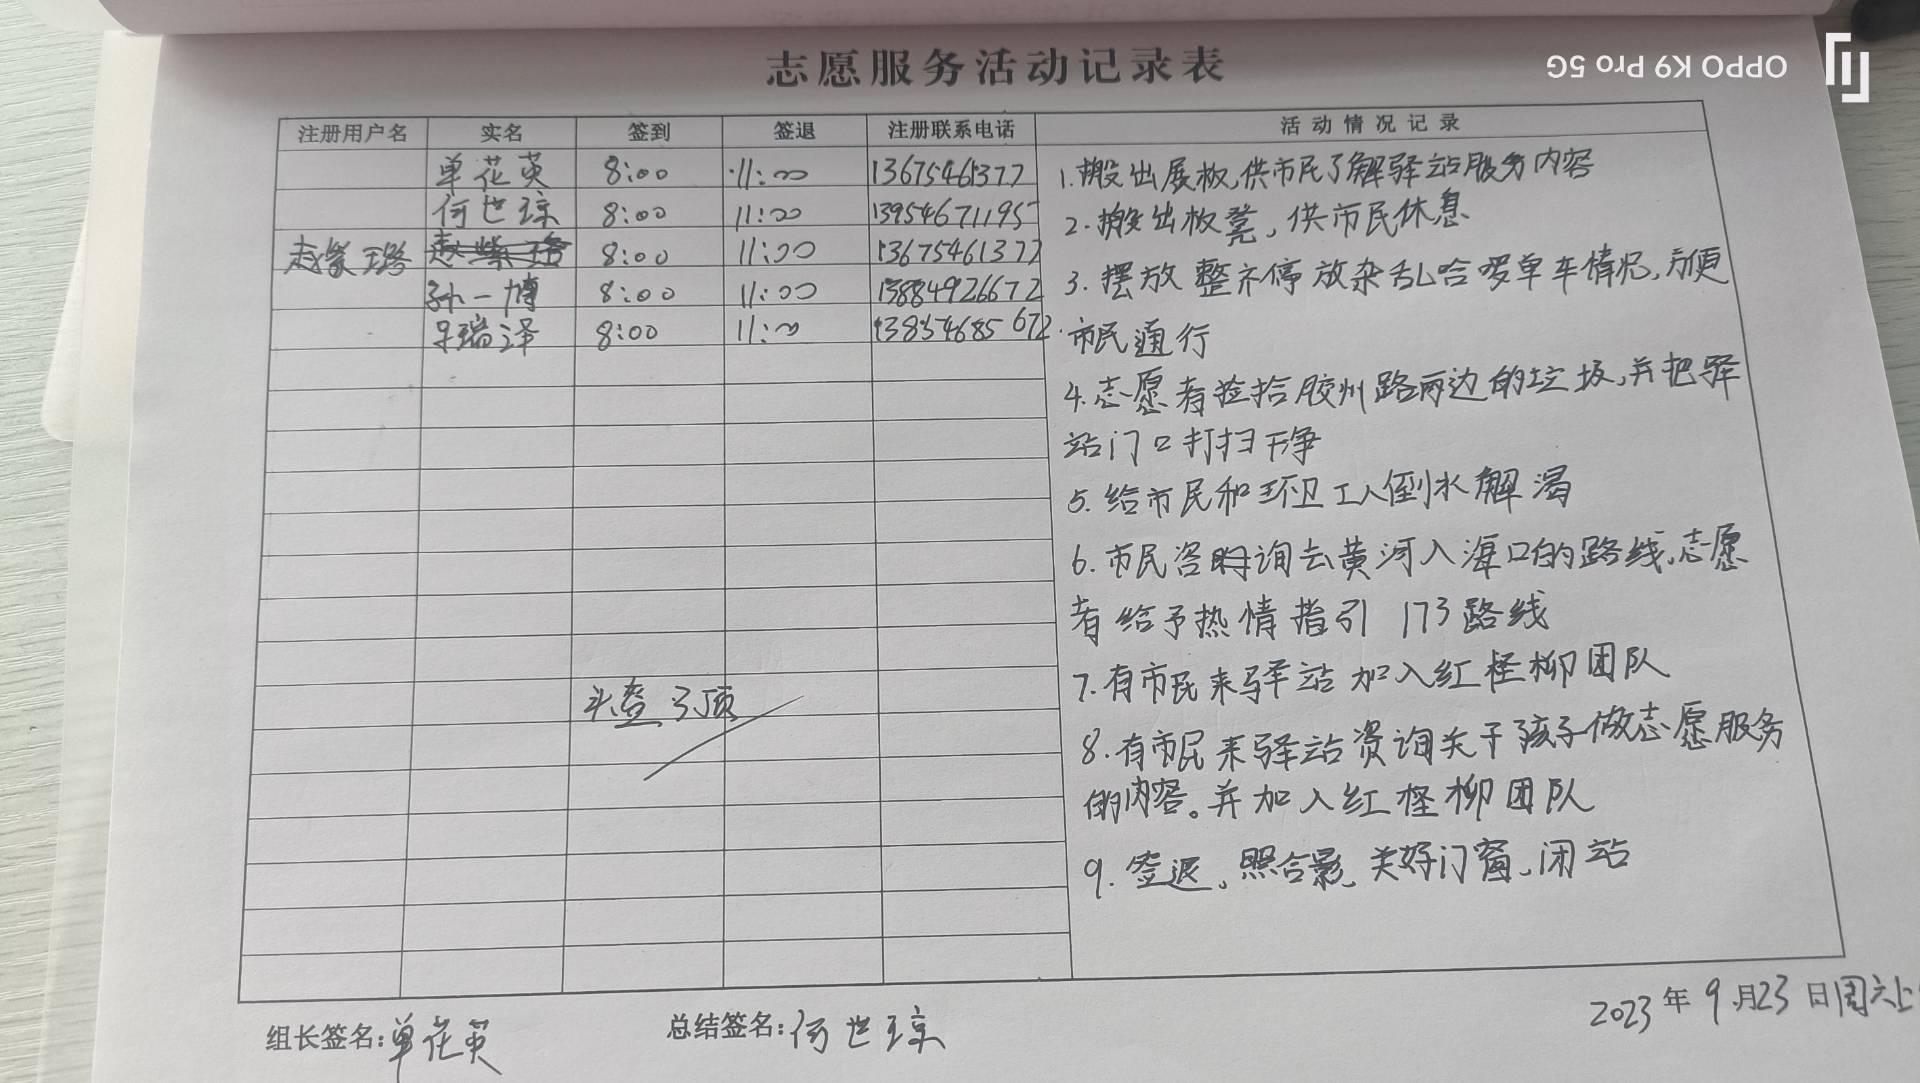 志愿服务活动记录表
OPPO K9 Pro 5G
注册用户名 实名 签到 签退 注册联系电话 活动情况记录
单花英 8:00 11:00 13675461377
何世琼 8:00 11:00 13954671195
赵紫璐 8:00 11:00 13675461377
孙一博 8:00 11:00 13884926672
瑞泽 8:00 11:00 13854685672
头盔3顶
1.搬出展板,供市民了解驿站服务内容
2.搬出板凳,供市民休息
3.摆放整齐停放杂乱哈啰单车情况,方便
市民通行
4.志愿者捡拾胶州路两边的垃圾,并把驿
站门口打扫干净
5.给市民和环卫工人倒水解渴
6.市民咨询去黄河入海口的路线,志愿
者给予热情指引173路线
7.有市民来驿站加入红柽柳团队
8.有市民来驿站资询关于孩子做志愿服务
的内容。并加入红柽柳团队
9.签退,照合影,关好门窗,闭站
组长签名:单花英 总结签名:何世琼 2023年9月23日周六上